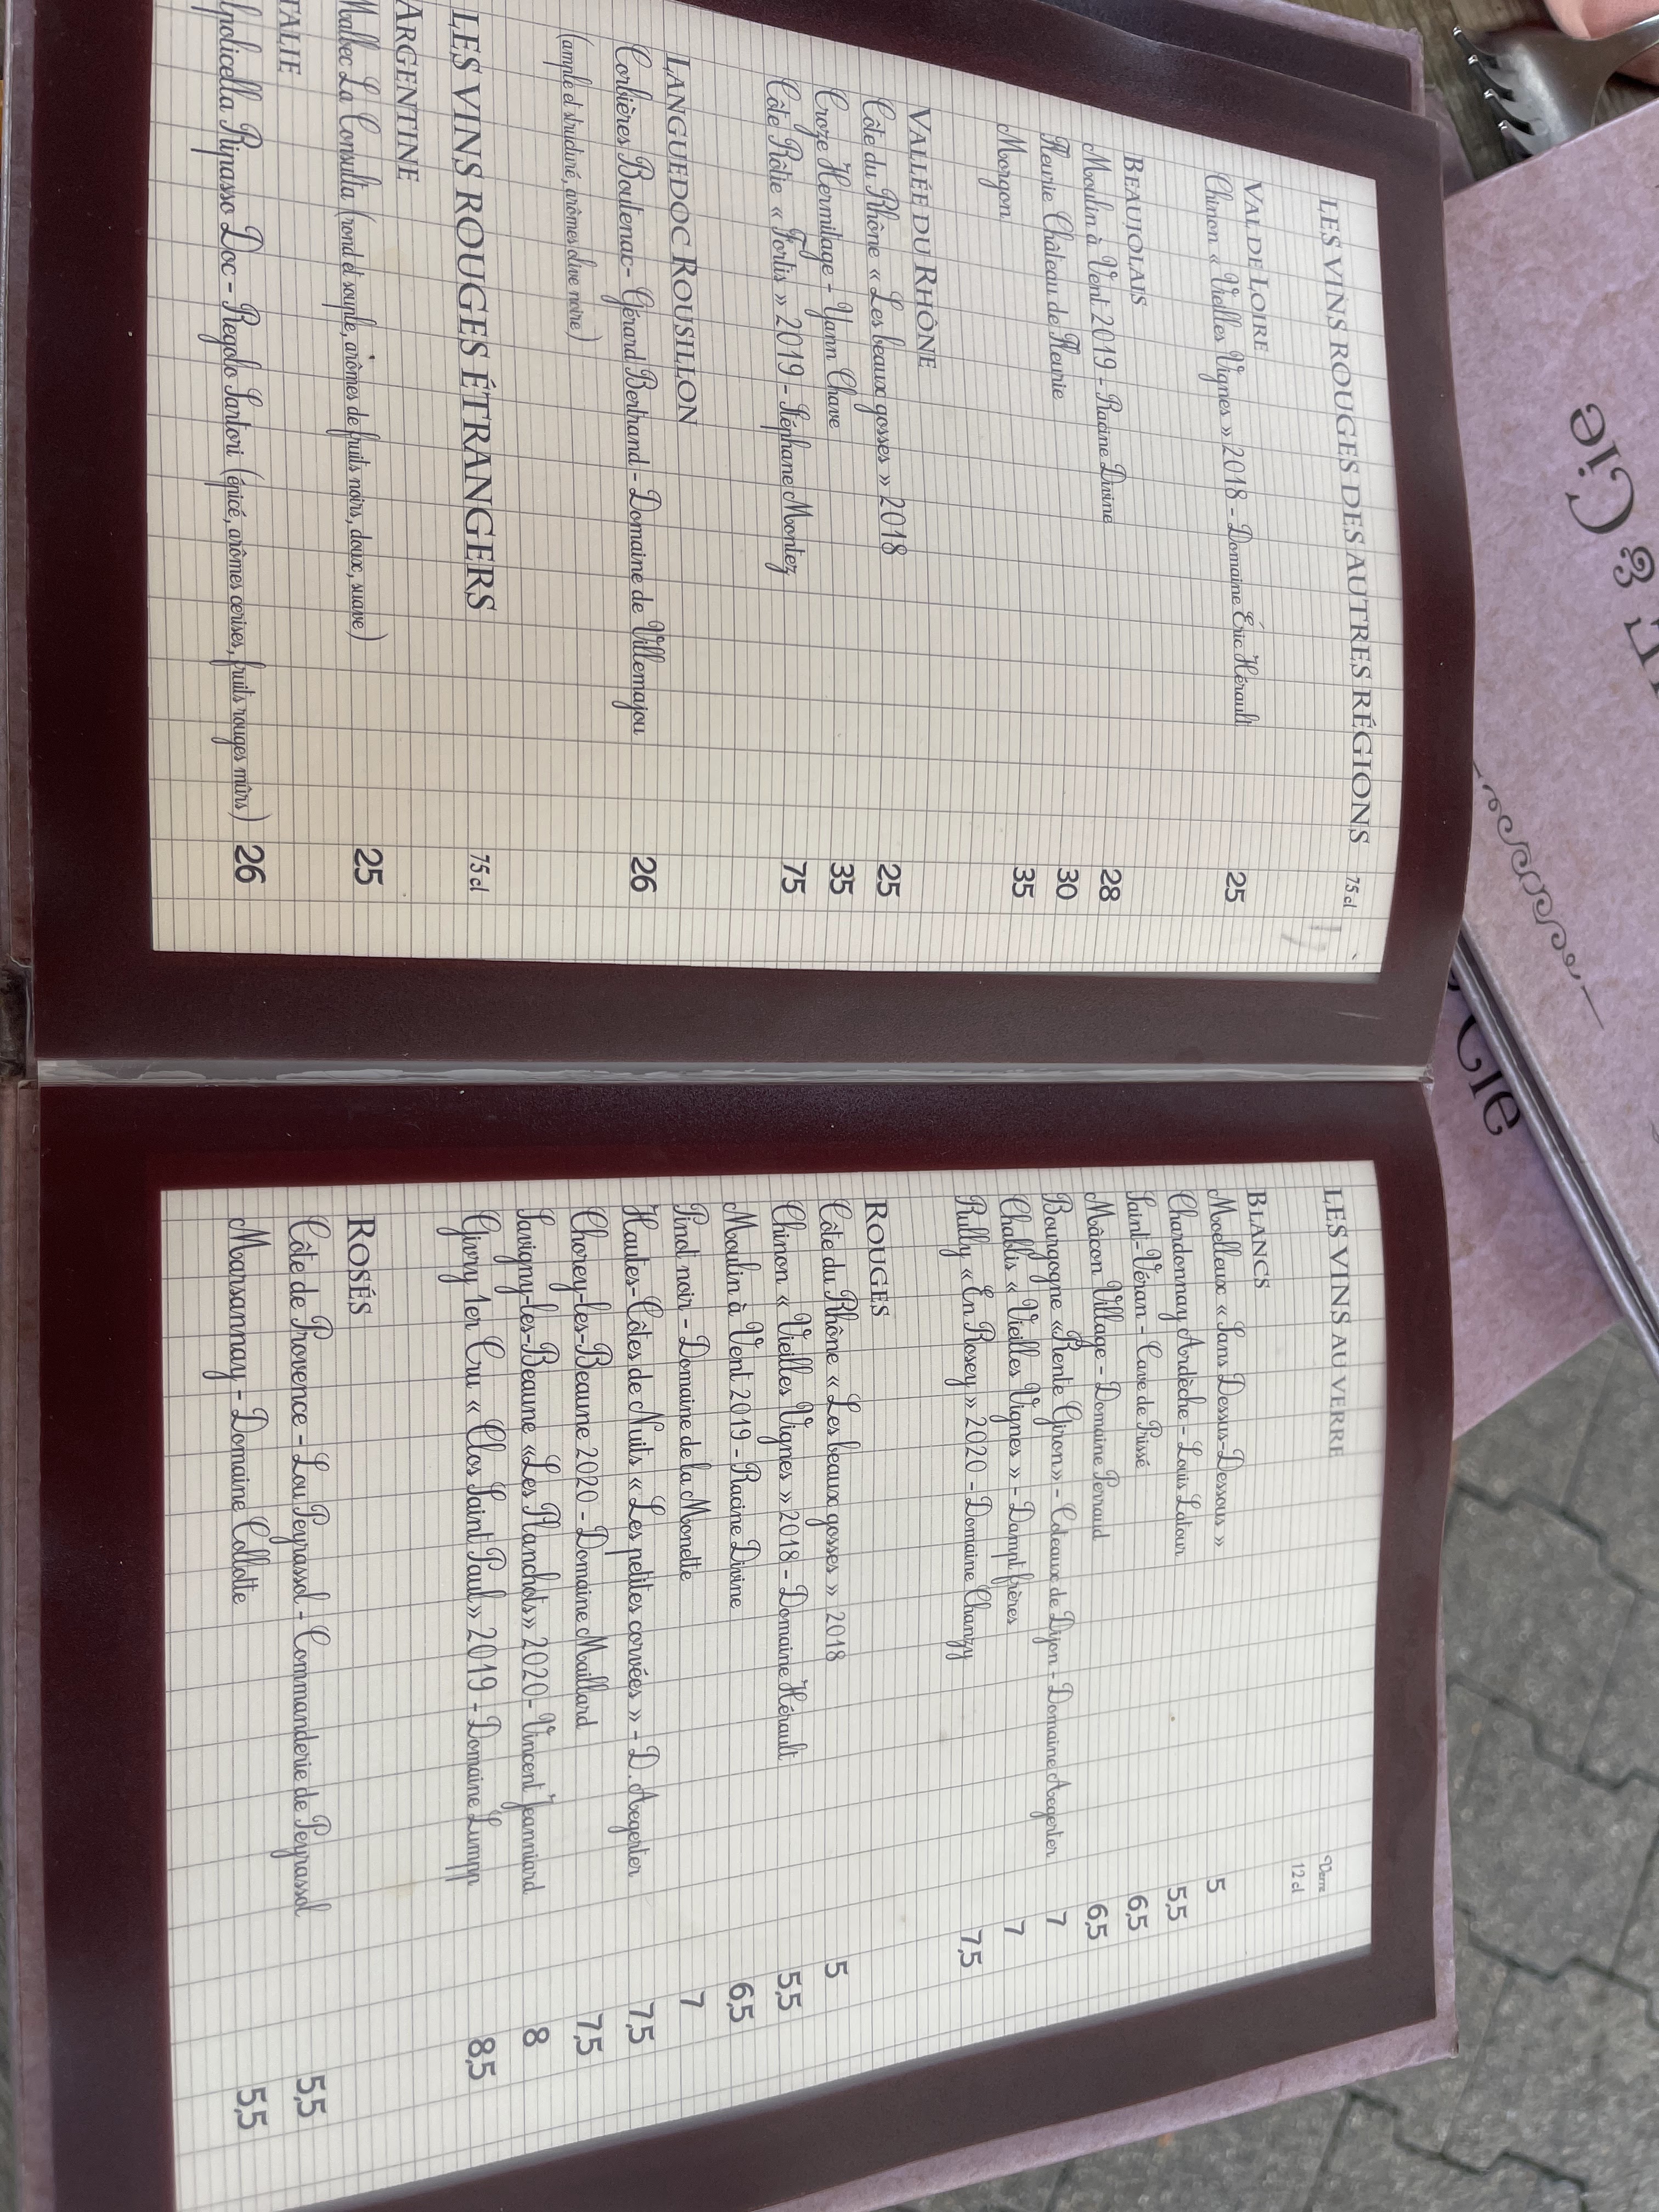 LES VINS ROUGES DES AUTRES RÉGIONS 75 cl
VAL DE LOIRE
Chinon « Vielles Vignes » 2018 - Domaine Éric Hérault 25
BEAUJOLAIS
Moulin à Vent 2019 - Racine Divine 28
Fleurie Château de Fleurie 30
Morgon 35
VALÉE DU RHÔNE
Côte du Rhône « Les beaux gosses » 2018 25
Croze Hermitage - Yann Chave 35
Côte Rôtie « Fortis » 2019 - Stéphane Montez 75
LANGUEDOC ROUSILLON
Corbières Boutenac - Gérard Bertrand - Domaine de Villemajou 26
(ample et structuré, arômes olive noire)
LES VINS ROUGES ÉTRANGERS 75 cl
ARGENTINE
Malbec La Consulta (rond et souple, arômes de fruits noirs, doux, suave) 25
TALIE
lpolicella Ripasso Doc - Regolo Sartori (épicé, arômes cerises, fruits rouges mûrs) 26
LES VINS AU VERRE
Verre
12 cl
BLANCS
Moelleux « Sans Dessus-Dessous » 5
Chardonnay Ardèche - Louis Latour 5,5
Saint-Véran - Cave de Prissé 6,5
Mâcon Village - Domaine Perraud 6,5
Bourgogne «Rente Giron» - Coteaux de Dijon - Domaine Aegerter 7
Chablis « Vieilles Vignes » - Dampt frères 7
Rully « En Rosey » 2020 - Domaine Chanzy 7,5
ROUGES
Côte du Rhône « Les beaux gosses » 2018 5
Chinon « Vieilles Vignes » 2018 - Domaine Hérault 5,5
Moulin à Vent 2019 - Racine Divine 6,5
Pinot noir - Domaine de la Monette 7
Hautes-Côtes de Nuits « Les petites corvées » - D. Aegerter 7,5
Chorey-les-Beaune 2020 - Domaine Maillard 7,5
Savigny-les-Beaune «Les Planchots» 2020 - Vincent Jeanniard 8
Givry 1er Cru « Clos Saint Paul» 2019 - Domaine Lumpp 8,5
ROSÉS
Côte de Provence - Lou Peyrassol - Commanderie de Peyrassol 5,5
Marsannay - Domaine Collotte 5,5
& Cie
Cie